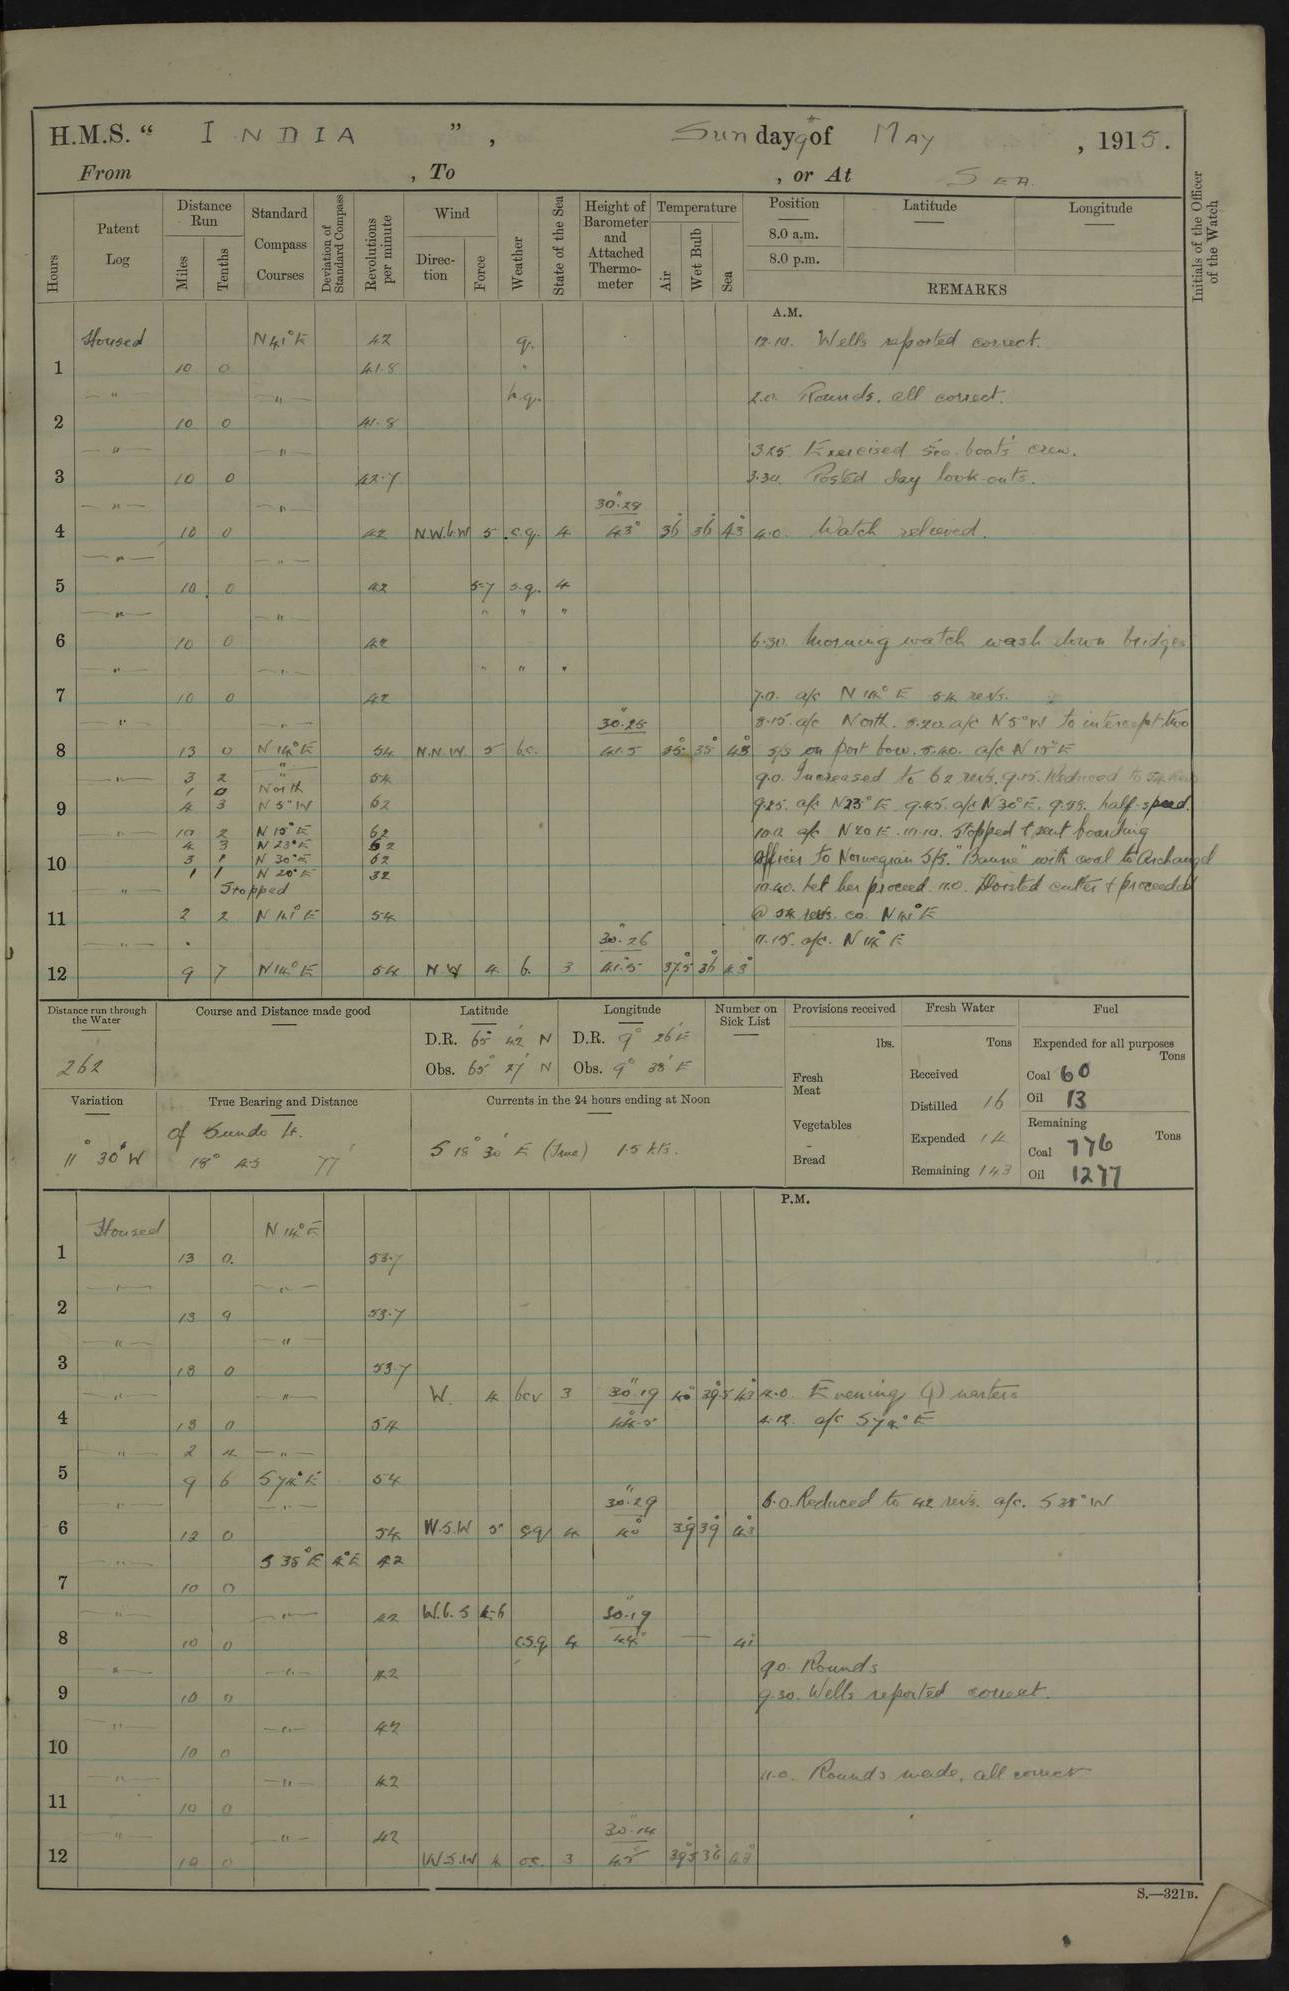 H.M.S. “ INDIA ”, Sunday 9th of MAY, 1915.
From , To , or At SEA.
Hours
Patent Log
Distance Run
Miles Tenths
Standard Compass Courses
Deviation of Standard Compass
Revolutions per minute
Wind
Direction Force
Weather
State of the Sea
Height of Barometer and Attached Thermometer
Temperature
Air Wet Bulb Sea
Position Latitude Longitude
8.0 a.m.
8.0 p.m.
REMARKS
Initials of the Officer of the Watch
A.M.
Housed N 41° E 42 q. 12.10. Wells reported correct.
1 10 0 41.8 "
" " b.q. 2.0. Rounds, all correct.
2 10 0 41.8
" " 3.25. Exercised sea-boat's crew.
3 10 0 42.7 3.30. Posted day look-outs.
" " 30".28
4 10 0 42 N.W.b.W 5 c.q. 4 43° 36° 36° 43° 4.0. Watch relieved.
" "
5 10 0 42 5-7 s.q. 4
" " " " "
6 10 0 42 6.30. Morning watch wash down bridges
" " " " "
7 10 0 42 7.0. a/c N 14° E 54 revs.
" " 30".25 8.15. a/c North. 8.20. a/c N 5° W to intercept two
8 13 0 N 14° E 54 N.N.W. 5 b.c. 41.5 35° 35° 43° S/S on port bow. 8.40. a/c N 15° E
" 3 2 " 54 9.0. Increased to 62 revs. 9.15. Reduced to 54 revs
1 0 North
9 4 3 N 5° W 62 9.25. a/c N23° E. 9.45. a/c N 30° E. 9.58. half-speed.
" 10 2 N 15° E 62 10.0. a/c N 20 E. 10.10. Stopped & sent boarding
4 3 N 23° E 62
10 3 1 N 30° E 62 officer to Norwegian S/S. "Banne" with coal to Archangel
1 1 N 20° E 32
" Stopped 10.40. Let her proceed. 11.0. Hoisted cutter & proceeded
11 2 2 N 41° E 54 @ 54 revs. co. N 41° E
" " 30".26 11.15. a/c. N 14° E
12 9 7 N 14° E 54 N.W 4 b. 3 41.5 37.5° 36° 43°
Distance run through the Water
262
Course and Distance made good
Latitude
D.R. 65° 42' N
Obs. 65° 27' N
Longitude
D.R. 9° 26' E
Obs. 9° 38' E
Number on Sick List
Provisions received
lbs.
Fresh Meat
Vegetables
Bread
Fresh Water
Tons
Received
Distilled 16
Expended 14
Remaining 143
Fuel
Expended for all purposes
Tons
Coal 60
Oil 13
Remaining
Tons
Coal 776
Oil 1277
Variation
11° 30' W
True Bearing and Distance
of Sundo Lt.
18° 45 77'
Currents in the 24 hours ending at Noon
S 18° 30' E (True) 1.5 kts.
P.M.
Housed N 14° E
1 13 0. 53.7
" "
2 13 9 53.7
" "
3 13 0 53.7
" " W. 4 bcv 3 30".19 40° 39.5° 43° 4.0. Evening Quarters
4 13 0 54 44.5° 4.12. a/c S 74° E
" 2 4 "
5 9 6 S 74° E 54
" " 30".29 6.0. Reduced to 42 revs. a/c. S 35° W
6 12 0 54 W.S.W 5 sq 4 40° 39° 39° 43
" S 35° E 4° E 42
7 10 0
" " 42 W.b.S 4-6 30".19
8 10 0 c.s.q 4 44° — 41°
" " 42 9.0. Rounds
9 10 0 9.30. Wells reported correct.
" " 42
10 10 0
" " 42 11.0. Rounds made, all correct
11 10 0
" " 42 30".14
12 10 0 W.S.W 4 oc. 3 45° 39.5° 36° 43°
S.—321B.